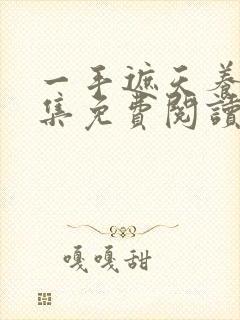 一手遮天养
集免費閱讀
嘎嘎甜